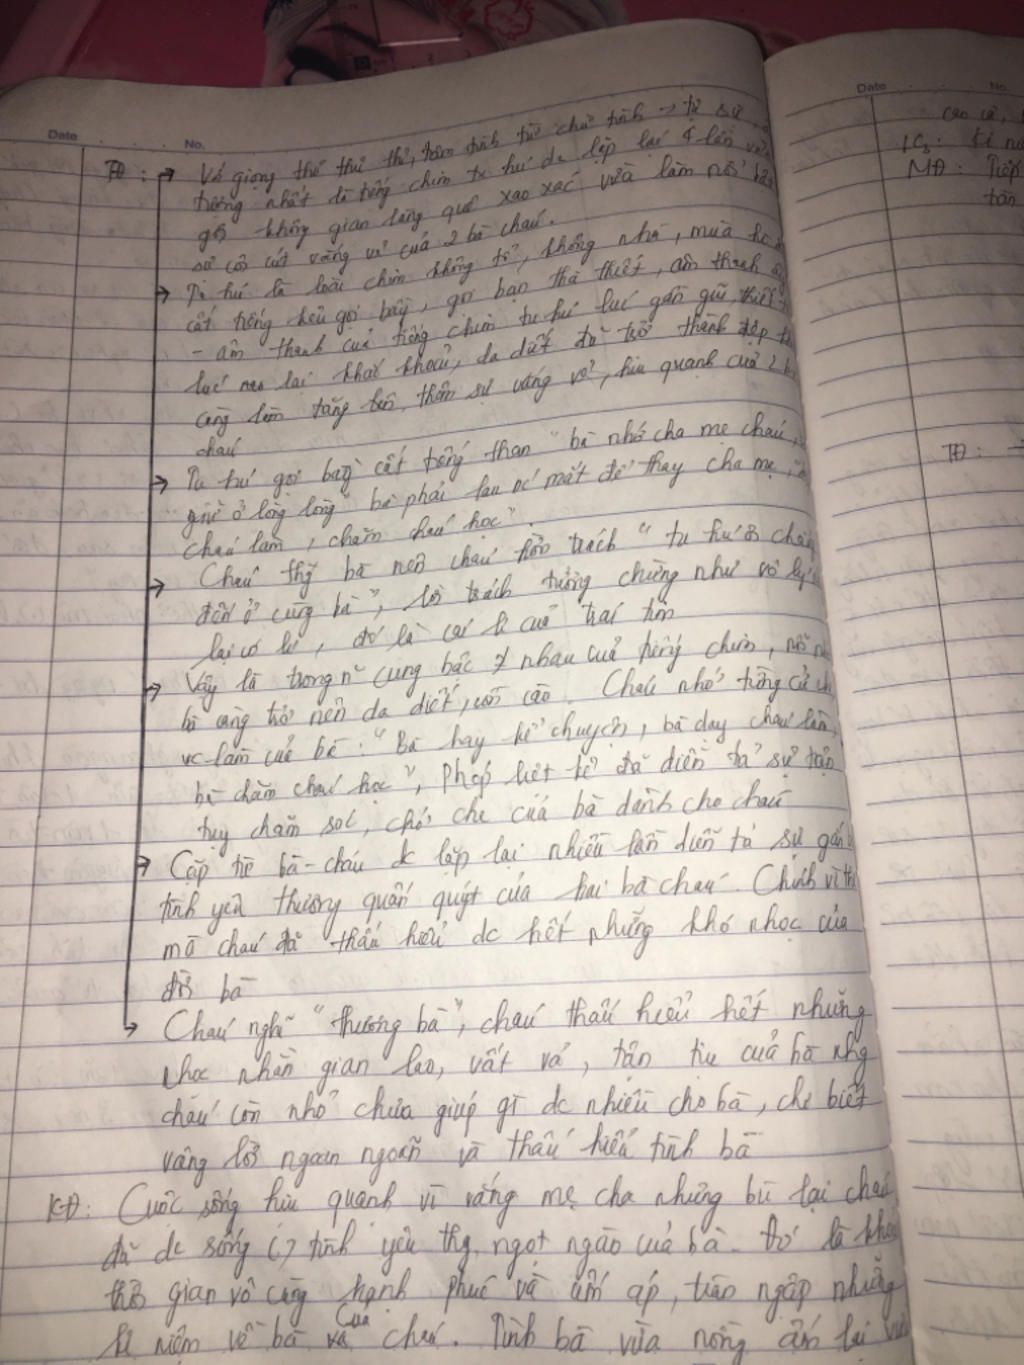 Date No.
TĐ: → Với giọng thơ thủ thỉ, tâm tình từ chữ tình → tự sự
tượng nhất là tiếng chim tu hú dc lặp lại 4 lần vừa
gợi không gian làng quê xao xác vừa làm nổi bật
sự côi cút vắng vẻ của 2 bà cháu.
→ Tu hú là loài chim không tổ, không nhà, mùa
cất tiếng kêu gọi bầy, gọi bạn tha thiết, âm thanh
- âm thanh của tiếng chim tu hú lúc gần gũi, thiết
lúc lại khắc khoải, da diết đã trở thành điệp
càng làm tăng lên thêm sự vắng vẻ, hiu quạnh của 2
cháu
→ Tu hú gọi bầy cất tiếng than "bà nhớ cha mẹ cháu,
"giữ ở lòng lòng" bà phải mất để thay cha mẹ,
cháu làm, chăm cháu học".
→ Cháu thg bà nên cháu hờn trách "tu hú ơi chẳng
đến ở cùng bà", lời trách tưởng chừng như vô lý
lại có lí, đó là cái lí của trái tim
→ Vậy là trong n~ cung bậc ≠ nhau của tiếng chim, nỗi
bà càng trở nên da diết, cồn cào. Cháu nhớ từng cử
vc làm của bà: "Bà hay kể chuyện, bà dạy cháu làm,
bà chăm cháu học", phép liệt kê đã diễn tả sự tận
tụy chăm sóc, chở che của bà dành cho cháu
→ Cặp từ bà-cháu dc lặp lại nhiều lần diễn tả sự gắn
tình yêu thương quấn quýt của hai bà cháu. Chính vì
mà cháu đã thấu hiểu dc hết những khó nhọc của
đời bà
→ Cháu nghĩ "thương bà", cháu thấu hiểu hết những
nhọc nhằn gian lao, vất vả, tần tảo của bà nhg
cháu còn nhỏ chưa giúp gì dc nhiều cho bà, chỉ biết
vâng lời ngoan ngoãn và thấu hiểu tình bà
KĐ: Cuộc sống hiu quạnh vì vắng mẹ cha nhưng bù lại cháu
đã dc sống (.) tình yêu thg, ngọt ngào của bà. Đó là
thời gian vô cùng hạnh phúc và ấm áp, tràn ngập những
kỉ niệm về bà và của cháu. Tình bà vừa nồng ấm lại
Date No.
cao cả,
MĐ: Tiếp
TĐ: